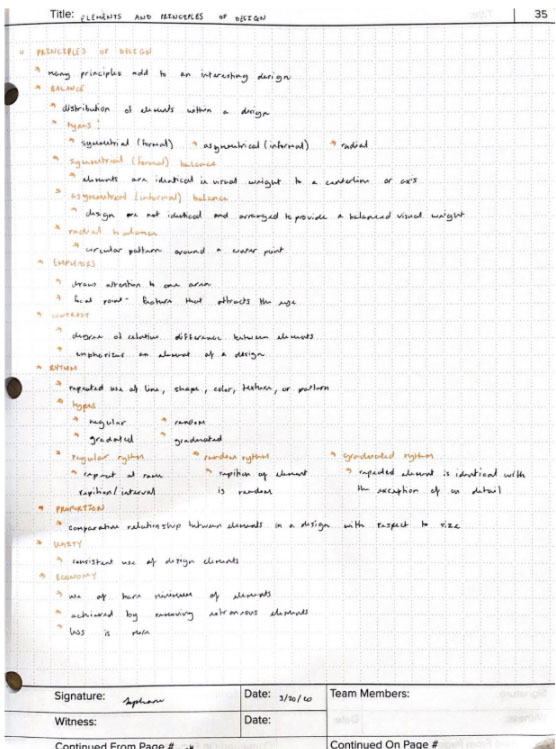 Title: ELEMENTS AND PRINCIPLES OF DESIGN 35
PRINCIPLES OF DESIGN
many principles add to an interesting design
BALANCE
distribution of elements within a design
types:
symmetrical (formal) asymmetrical (informal) radial
symmetrical (formal) balance
elements are identical in visual weight to a centerline or axis
asymmetrical (informal) balance
design are not identical and arranged to provide a balanced visual weight
radial balance
circular pattern around a center point
EMPHASIS
draws attention to one area
focal point- feature that attracts the eye
CONTRAST
degree of relative difference between elements
emphasizes an element of a design
RYTHM
repeated use of line, shape, color, texture, or pattern
types
regular random
gradated graduated
regular rythm random rythm graduated rythm
repeat at same repition of element repeated element is identical with
repition/interval is random the exception of on detail
PROPORTION
comparative relationship between elements in a design with respect to size
UNITY
consistent use of design elements
ECONOMY
use of bare minimum of elements
achieved by removing elements
less is more
Signature: Date: 3/20/20 Team Members:
Witness: Date:
Continued From Page # Continued On Page #